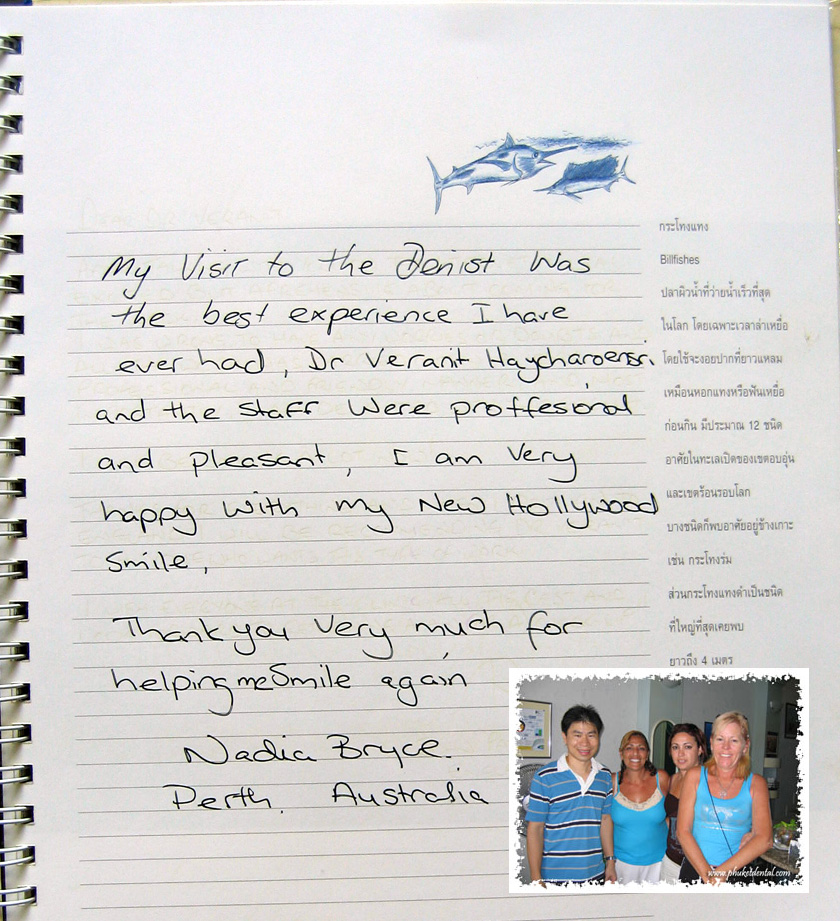 My Visit to the Denist Was
the best experience I have
ever had, Dr Veranit Haycharoensri,
and the staff Were proffesional
and pleasant, I am Very
happy With my New Hollywood
Smile,
Thank you Very much for
helping me Smile again
Nadia Bryce.
Perth. Australia
กระโทงแทง
Billfishes
ปลาผิวน้ำที่ว่ายน้ำเร็วที่สุด
ในโลก โดยเฉพาะเวลาล่าเหยื่อ
โดยใช้จะงอยปากที่ยาวแหลม
เหมือนหอกแทงหรือฟันเหยื่อ
ก่อนกิน มีประมาณ 12 ชนิด
อาศัยในทะเลเปิดของเขตอบอุ่น
และเขตร้อนรอบโลก
บางชนิดก็พบอาศัยอยู่ข้างเกาะ
เช่น กระโทงร่ม
ส่วนกระโทงแทงดำเป็นชนิด
ที่ใหญ่ที่สุดเคยพบ
ยาวถึง 4 เมตร
www.phuketdental.com